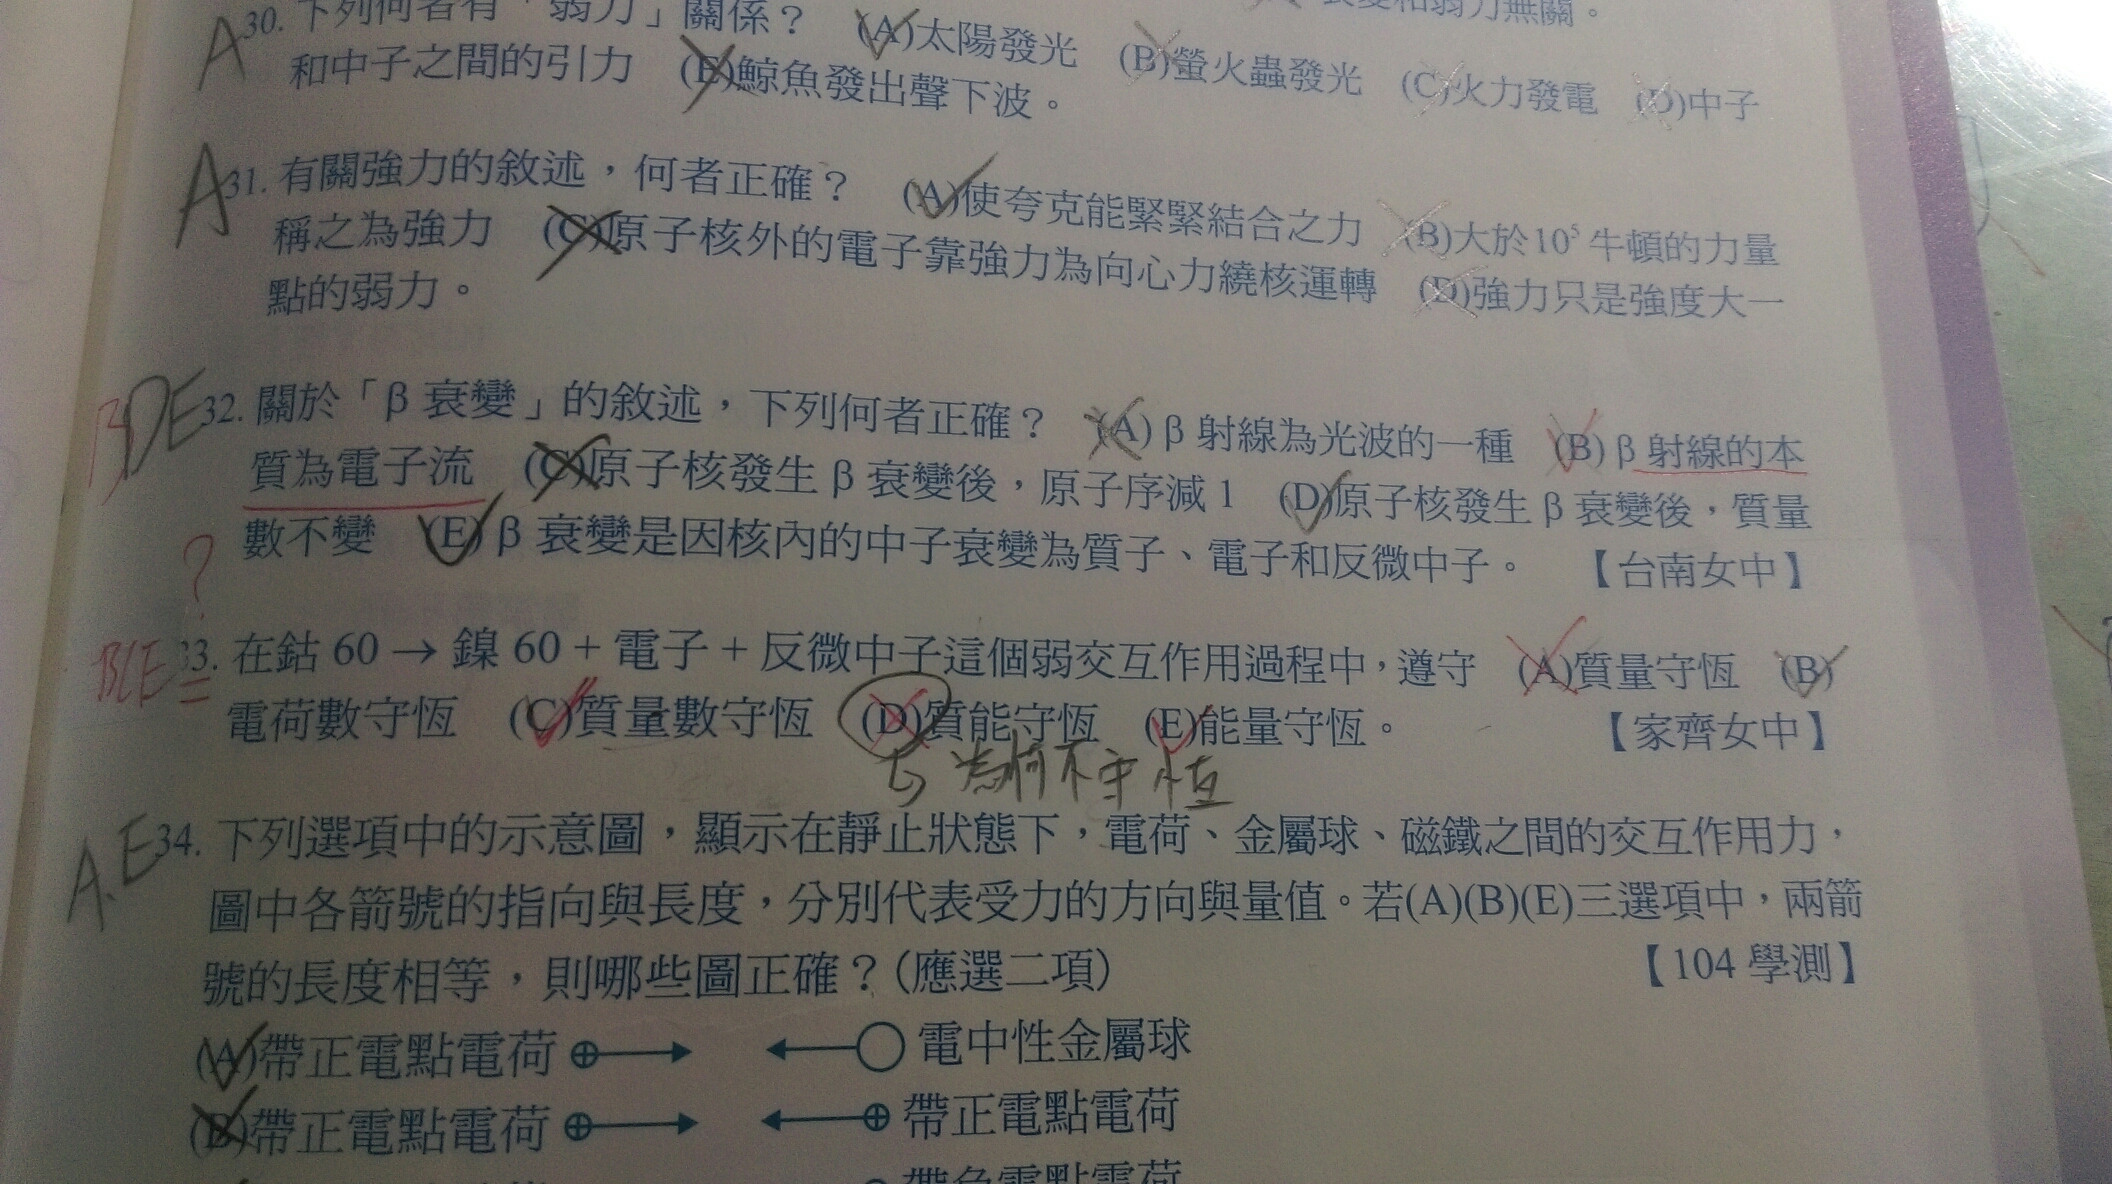 A 30. 下列何者有「弱力」關係？ (A)太陽發光 (B)螢火蟲發光 (C)火力發電 (D)中子
和弱力無關。
和中子之間的引力 (E)鯨魚發出聲下波。
A 31. 有關強力的敘述，何者正確？ (A)使夸克能緊緊結合之力 (B)大於10⁵ 牛頓的力量
稱之為強力 (C)原子核外的電子靠強力為向心力繞核運轉 (D)強力只是強度大一
點的弱力。
BDE 32. 關於「β 衰變」的敘述，下列何者正確？ (A) β 射線為光波的一種 (B) β 射線的本
質為電子流 (C)原子核發生 β 衰變後，原子序減 1 (D)原子核發生 β 衰變後，質量
數不變 (E) β 衰變是因核內的中子衰變為質子、電子和反微中子。 【台南女中】
?
BCE 33. 在鈷 60 → 鎳 60 + 電子 + 反微中子這個弱交互作用過程中，遵守 (A)質量守恆 (B)
電荷數守恆 (C)質量數守恆 (D)質能守恆 (E)能量守恆。 【家齊女中】
為何不守恆
A.E 34. 下列選項中的示意圖，顯示在靜止狀態下，電荷、金屬球、磁鐵之間的交互作用力，
圖中各箭號的指向與長度，分別代表受力的方向與量值。若(A)(B)(E)三選項中，兩箭
號的長度相等，則哪些圖正確？(應選二項) 【104 學測】
(A)帶正電點電荷 電中性金屬球
(B)帶正電點電荷 帶正電點電荷
帶負電點電荷